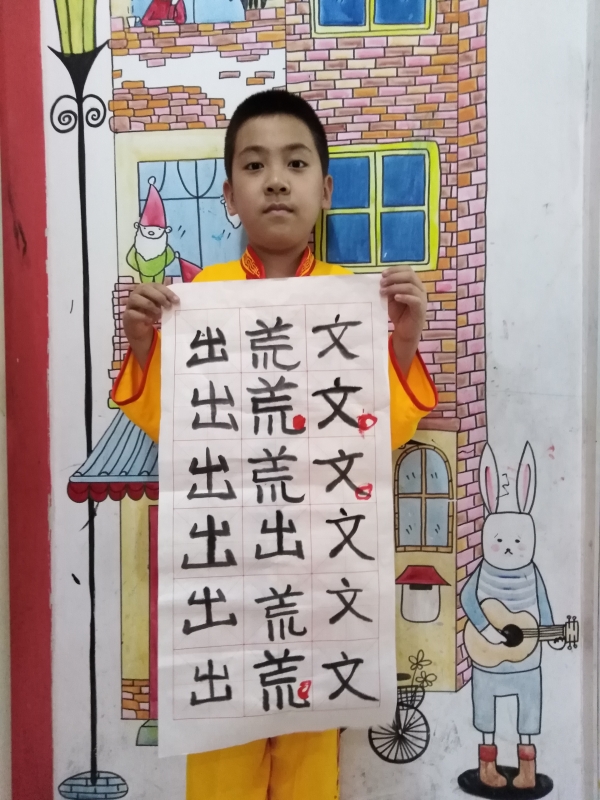 文文文文文文
荒荒荒出荒荒
出出出出出出